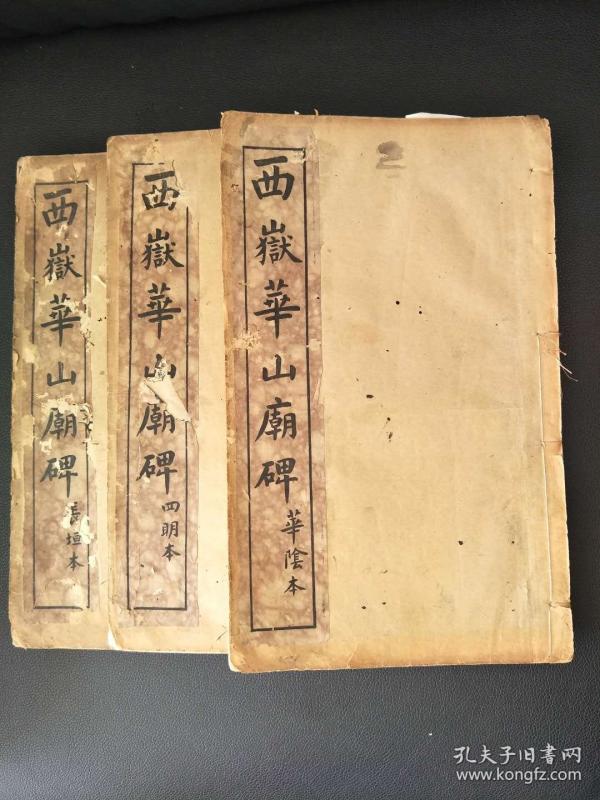 西嶽華山廟碑 長垣本
西嶽華山廟碑 四明本
西嶽華山廟碑 華陰本
孔夫子旧书网
www.kongfz.com